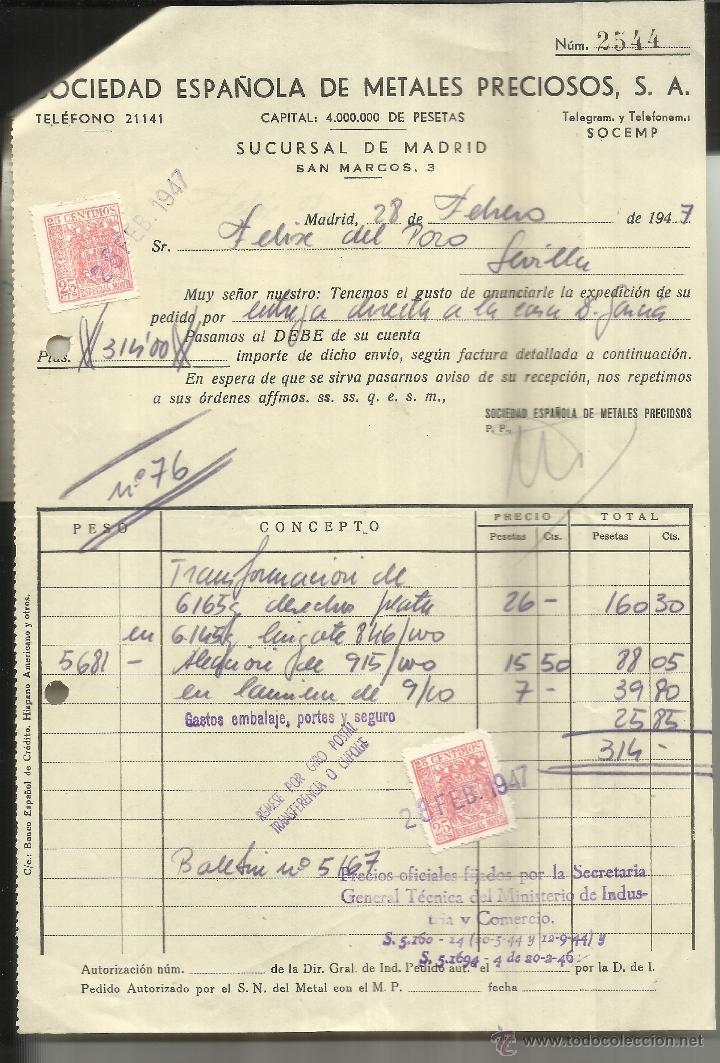 Núm. 2544
SOCIEDAD ESPAÑOLA DE METALES PRECIOSOS, S. A.
TELÉFONO 21141
CAPITAL: 4.000.000 DE PESETAS
Telegram. y Telefonem.:
SOCEMP
SUCURSAL DE MADRID
SAN MARCOS, 3
25 CENTIMOS
25 FEB. 1947
Madrid, 28 de Febrero de 1947
Sr. Felix del Pozo
Sevilla
Muy señor nuestro: Tenemos el gusto de anunciarle la expedición de su
pedido por entrega directa a la casa D. García
Pasamos al DEBE de su cuenta
Ptas. 314'00 importe de dicho envío, según factura detallada a continuación.
En espera de que se sirva pasarnos aviso de su recepción, nos repetimos
a sus órdenes affmos. ss. ss. q. e. s. m.,
SOCIEDAD ESPAÑOLA DE METALES PRECIOSOS
P. P.,
nº 76
PESO CONCEPTO PRECIO TOTAL
Pesetas Cts. Pesetas Cts.
Transformación de
6165g derecho plata 26 - 160 30
en 6.145g lingote 846/000
5681 - de 915/000 15 50 88 05
en de 9/10 7 - 39 80
Gastos embalaje, portes y seguro 25 85
314 -
REMESE POR GIRO POSTAL
TRANSFERENCIA O CHEQUE
25 CENTIMOS
28 FEB. 1947
Boletin nº 5167
Precios oficiales fijados por la Secretaria
General Técnica del Ministerio de Indus-
tria y Comercio.
S. 5.160 - 14 (10-5-44 y 12-9-44) y
S. 5.1694 - 4 de 20-2-46
Autorización núm. de la Dir. Gral. de Ind. Pedido aut. el por la D. de I.
Pedido Autorizado por el S. N. del Metal con el M. P. fecha
C/c.: Banco Español de Crédito, Hispano Americano y otros.
todocoleccion
www.todocoleccion.net